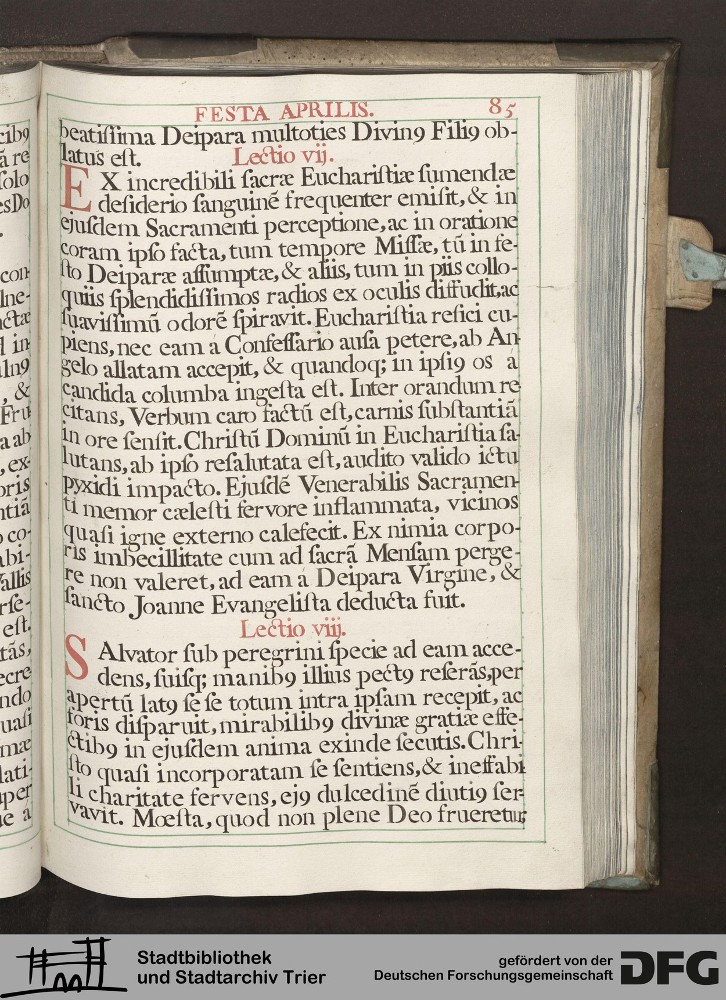 FESTA APRILIS. 85
beatiſſima Deipara multoties Divinꝰ Filiꝰ ob-
latus eſt. Lectio vij.
EX incredibili ſacræ Euchariſtiæ ſumendæ
deſiderio ſanguinẽ frequenter emiſit, & in
ejuſdem Sacramenti perceptione, ac in oratione
coram ipſo facta, tum tempore Miſſæ, tũ in fe-
ſto Deiparæ aſſumptæ, & aliis, tum in piis collo-
quiis ſplendidiſſimos radios ex oculis diffudit, ac
ſuaviſſimũ odorẽ ſpiravit. Euchariſtia refici cu-
piens, nec eam á Confeſſario auſa petere, ab An
gelo allatam accepit, & quandoq; in ipſiꝰ os á
candida columba ingeſta eſt. Inter orandum re
citans, Verbum caro factũ eſt, carnis ſubſtantiã
in ore ſenſit. Chriſtũ Dominũ in Euchariſtia ſa-
lutans, ab ipſo reſalutata eſt, audito valido ictu
pyxidi impacto. Ejuſdẽ Venerabilis Sacramen-
ti memor cæleſti fervore inflammata, vicinos
quaſi igne externo calefecit. Ex nimia corpo-
ris imbecillitate cum ad ſacrã Menſam perge-
re non valeret, ad eam á Deipara Virgine, &
ſancto Joanne Evangeliſta deducta fuit.
Lectio viij.
SAlvator ſub peregrini ſpecie ad eam acce-
dens, ſuiſq; manibꝰ illius pectꝰ reſerãs, per
apertũ latꝰ ſe ſe totum intra ipſam recepit, ac
foris diſparuit, mirabilibꝰ divinæ gratiæ effe-
ctibꝰ in ejuſdem anima exinde ſecutis. Chri-
ſto quaſi incorporatam ſe ſentiens, & ineffabi
li charitate fervens, ejꝰ dulcedinẽ diutiꝰ ſer-
vavit. Mœſta, quod non plene Deo frueretur;
Stadtbibliothek
und Stadtarchiv Trier
gefördert von der
Deutschen Forschungsgemeinschaft
DFG